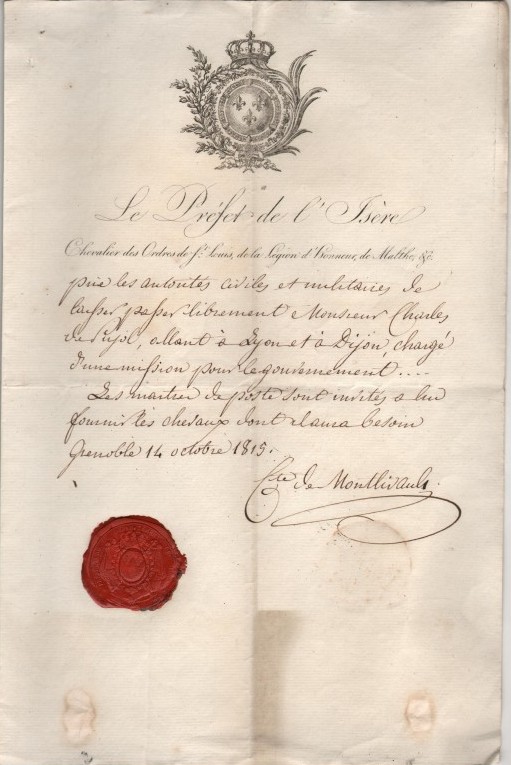 Le Préfet de l'Isère
Chevalier des Ordres de St. Louis, de la Légion d'Honneur, de Malthe, &c.
prie les autorités civiles et militaires de
laisser passer librement Monsieur Charles
de Pujol, allant à Lyon et à Dijon, chargé
d'une mission pour le gouvernement....
Les maitres de poste sont invités a lui
fournir les chevaux dont il aura besoin
Grenoble 14 octobre 1815.
Cte de Montlivault